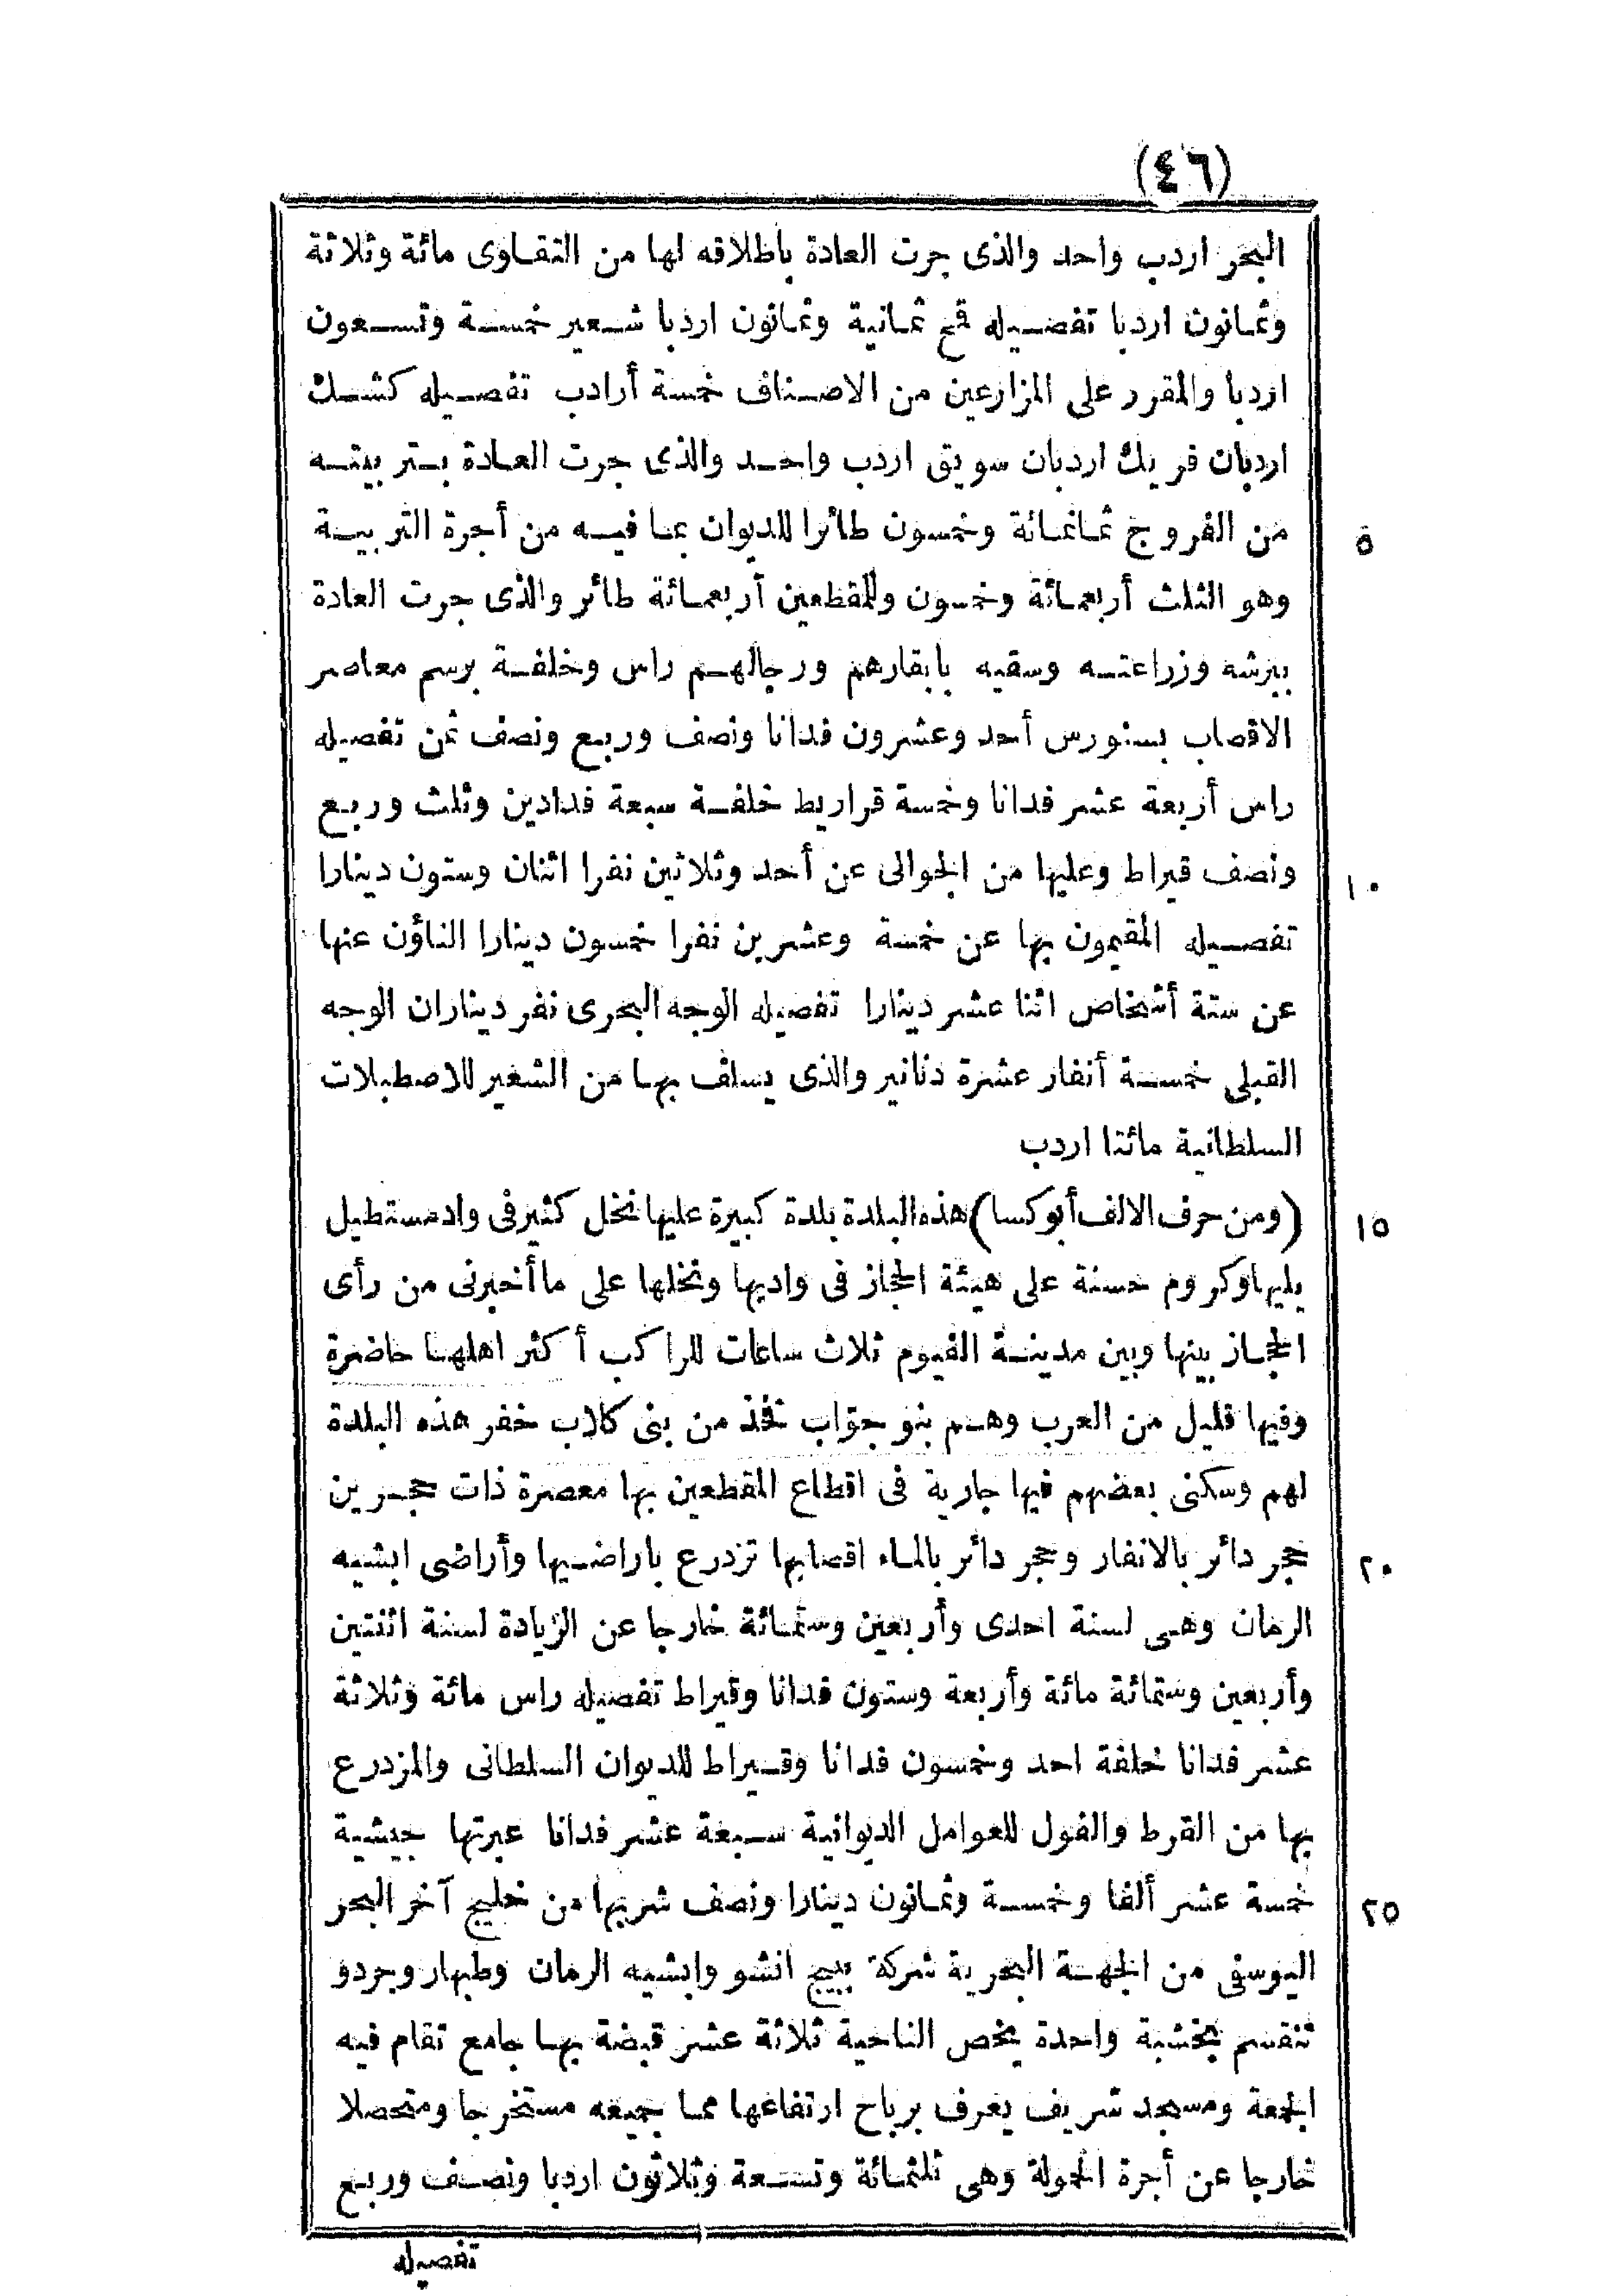 (٤٦)
البحر اردب واحد والذى جرت العادة باطلاقه لها من التقاوى مائة وثلاثة
وثمانون اردبا تفصيله قمح ثمانية وثمانون اردبا شعير خمسة وتسعون
اردبا والمقرر على المزارعين من الاصناف خمسة أرادب تفصيله كشك
اردبان فريك اردبان سويق اردب واحد والذى جرت العادة بتربيته
من الفروج ثمانمائة وخمسون طائرا للديوان بما فيه من أجرة التربية ٥
وهو الثلث أربعمائة وخمسون وللمقطعين أربعمائة طائر والذى جرت العادة
ببرشه وزراعته وسقيه بابقارهم ورجالهم راس وخلفة برسم معاصر
الاقصاب بسنورس أحد وعشرون فدانا ونصف وربع ونصف ثمن تفصيله
راس أربعة عشر فدانا وخمسة قراريط خلفة سبعة فدادين وثلث وربع
ونصف قيراط وعليها من الجوالى عن أحد وثلاثين نفرا اثنان وستون دينارا ١٠
تفصيله المقيمون بها عن خمسة وعشرين نفرا خمسون دينارا الناؤن عنها
عن ستة أشخاص اثنا عشر دينارا تفصيله الوجه البحرى نفر ديناران الوجه
القبلى خمسة أنفار عشرة دنانير والذى يسلف بها من الشعير للاصطبلات
السلطانية مائتا اردب
(ومن حرف الالف أبوكسا) هذه البلدة بلدة كبيرة عليها نخل كثير فى واد مستطيل ١٥
يليها وكروم حسنة على هيئة الحجاز فى واديها ونخلها على ما أخبرنى من رأى
الحجاز بينها وبين مدينة الفيوم ثلاث ساعات للراكب أكثر اهلها حاضرة
وفيها قليل من العرب وهم بنو جوّاب فخذ من بنى كلاب خفر هذه البلدة
لهم وسكنى بعضهم فيها جارية فى اقطاع المقطعين بها معصرة ذات حجرين
حجر دائر بالانفار وحجر دائر بالماء اقصابها تزدرع باراضيها وأراضى ابشيه ٢٠
الرمان وهى لسنة احدى وأربعين وستمائة خارجا عن الزيادة لسنة اثنتين
وأربعين وستمائة مائة وأربعة وستون فدانا وقيراط تفصيله راس مائة وثلاثة
عشر فدانا خلفة احد وخمسون فدانا وقيراط للديوان السلطانى والمزدرع
بها من القرط والفول للعوامل الديوانية سبعة عشر فدانا عبرتها جيشية
خمسة عشر ألفا وخمسة وثمانون دينارا ونصف شربها من خليج آخر البحر ٢٥
اليوسفى من الجهة البحرية شركة ببيج انشو وابشيه الرمان وطبهار وجردو
تنقسم بخشبة واحدة يخص الناحية ثلاثة عشر قبضة بها جامع تقام فيه
الجمعة ومسجد شريف يعرف برباح ارتفاعها مما جميعه مستخرجا ومتحصلا
خارجا عن أجرة الحمولة وهى ثلثمائة وتسعة وثلاثون اردبا ونصف وربع
تفصيله